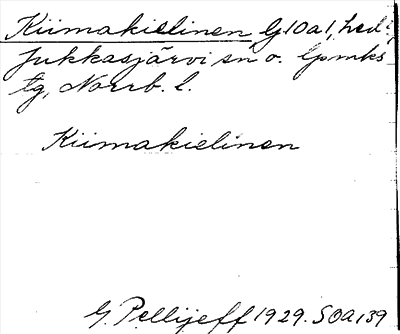 Kiimakielinen G10a1, hed.,
Jukkasjärvi sn o. lpmks
tg, Norrb. l.
Kiimakielinen
G. Pellijeff 1929. SOA, 39